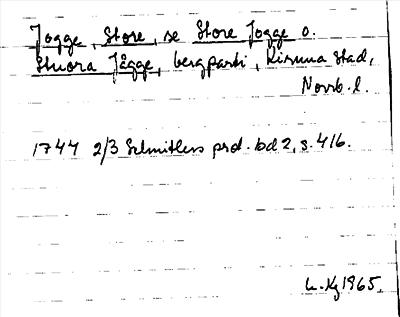 Jogge, Store, se Store Jogge o.
Stuora Jågge, bergparti, Kiruna stad,
Norrb. l.
1744 2/3 Schnitlers prot. bd 2, s. 416.
L. Kg 1965.